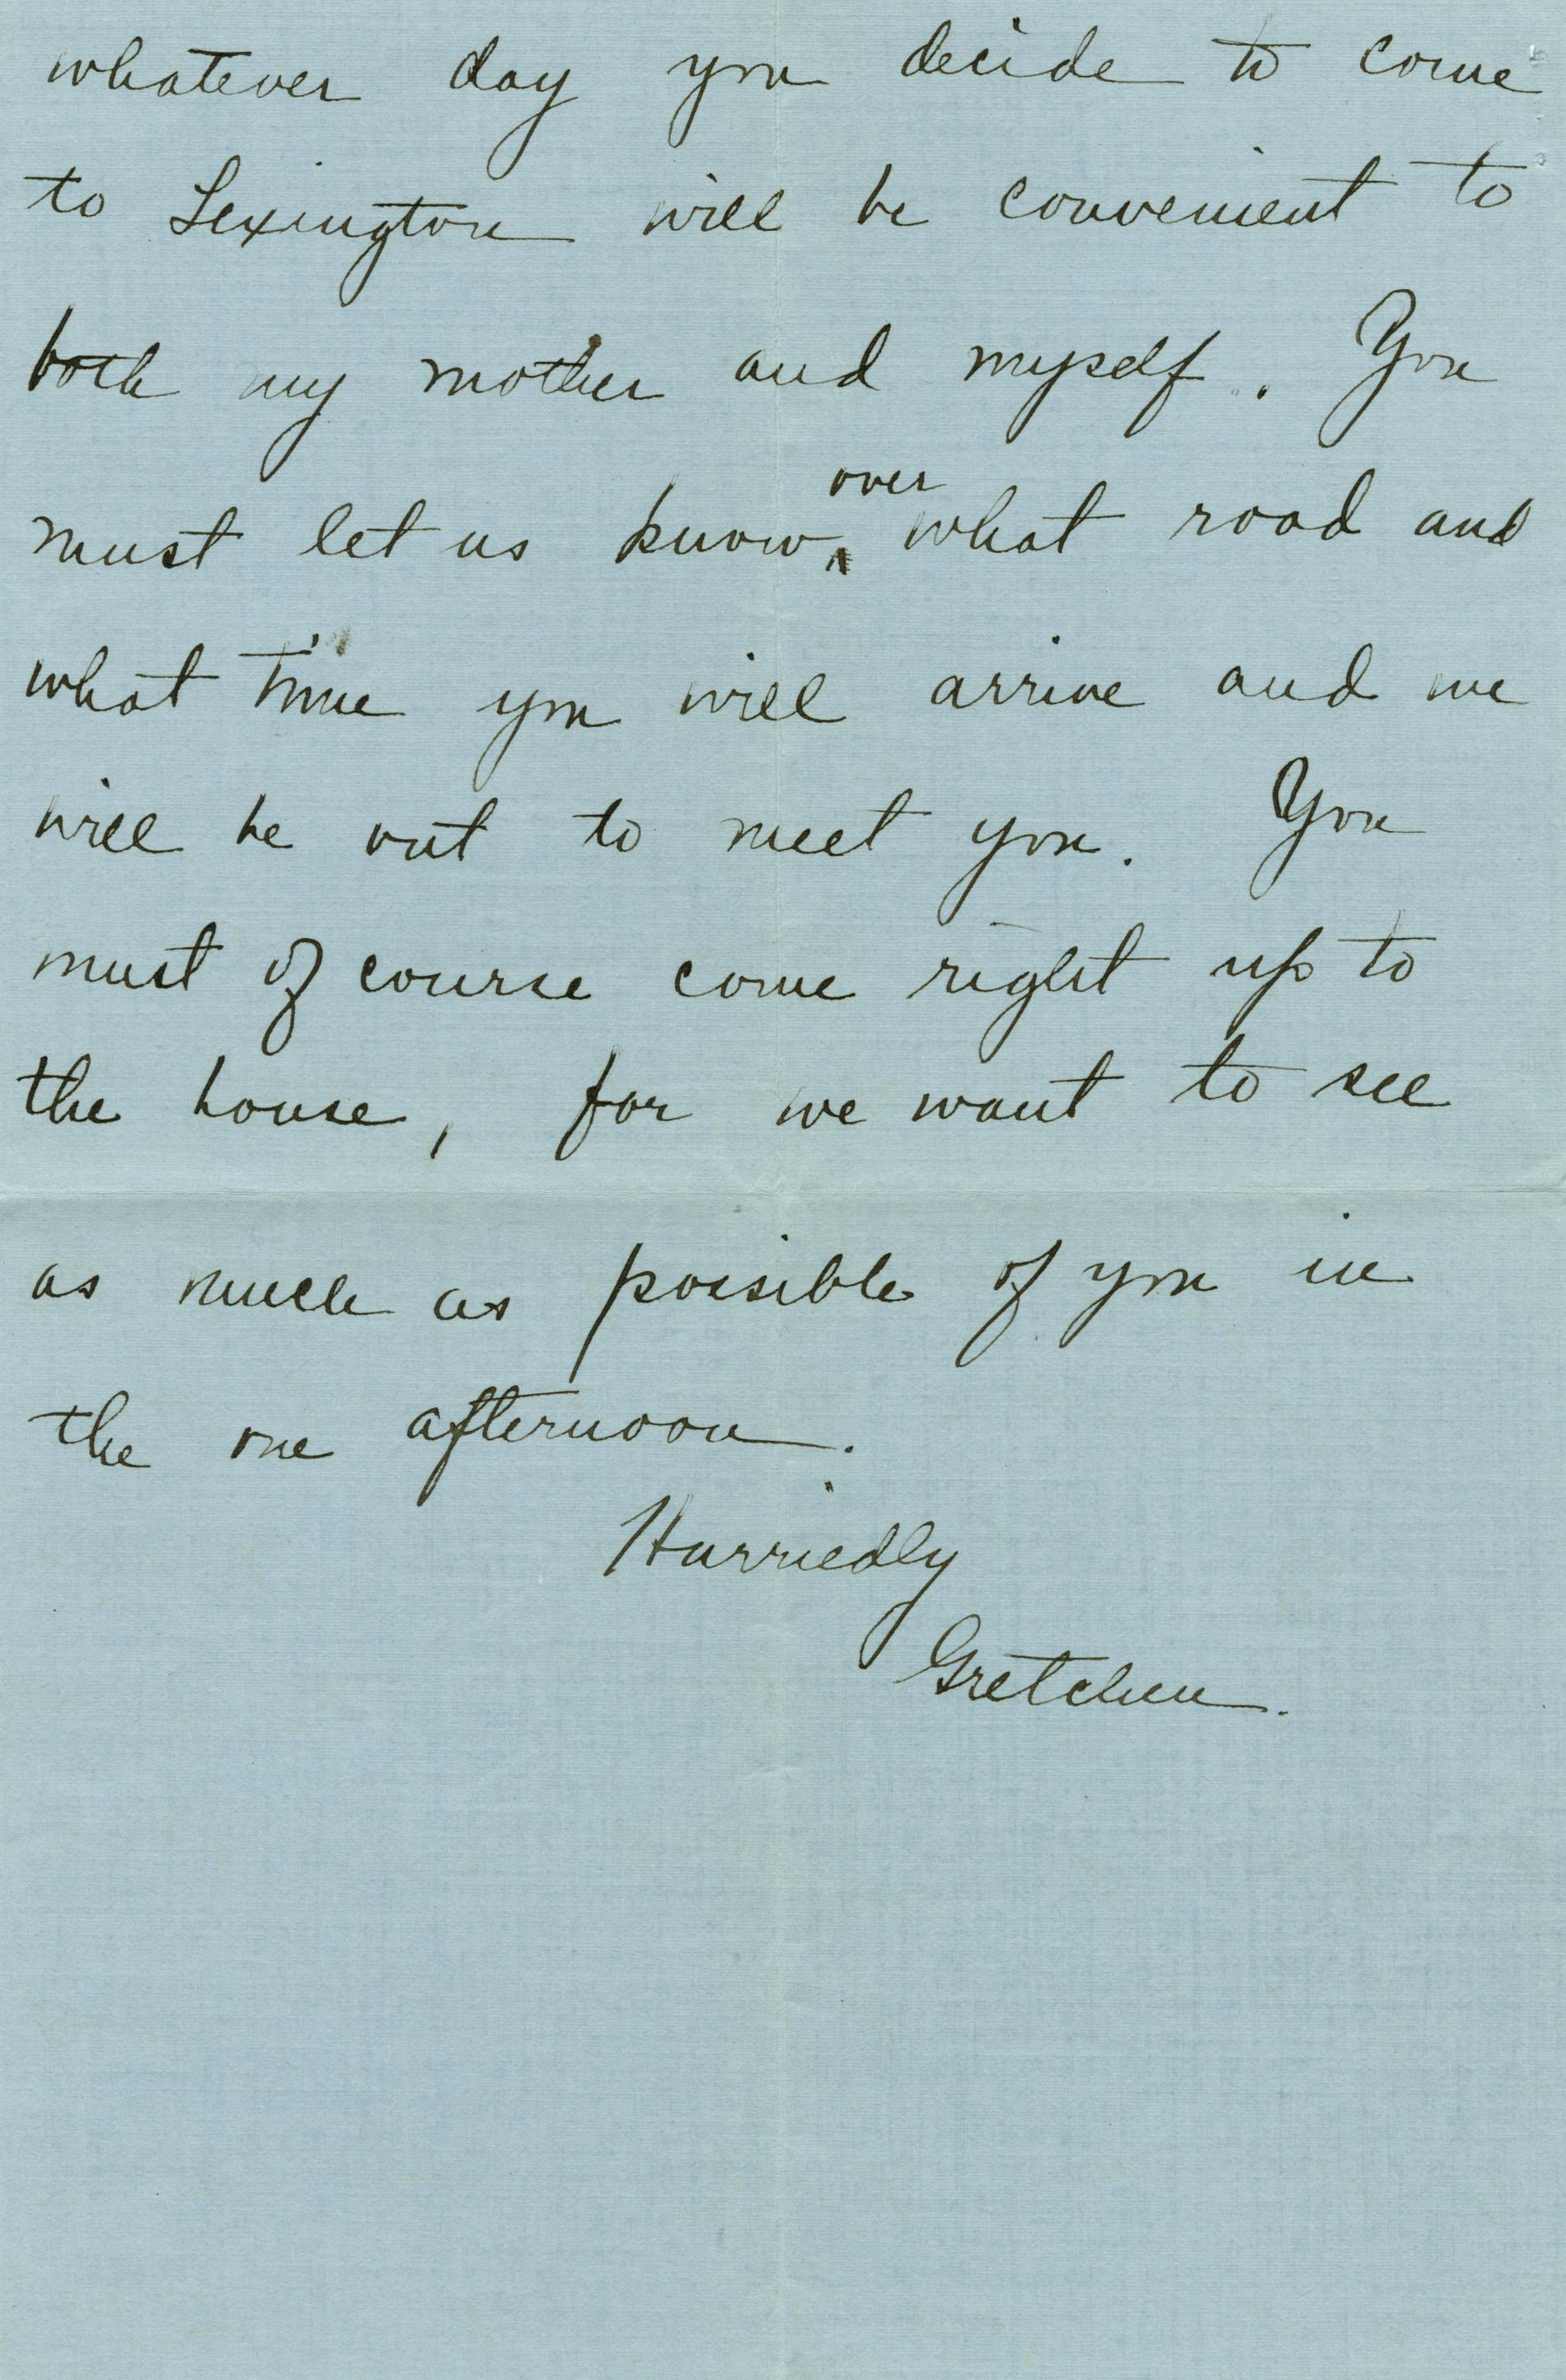 whatever day you decide to come
to Lexington will be convenient to
both my mother and myself. You
must let us know over what road and
what time you will arrive and we
will be out to meet you. You
must of course come right up to
the house, for we want to see
as much as possible of you in
the one afternoon.
Hurriedly
Gretchen.